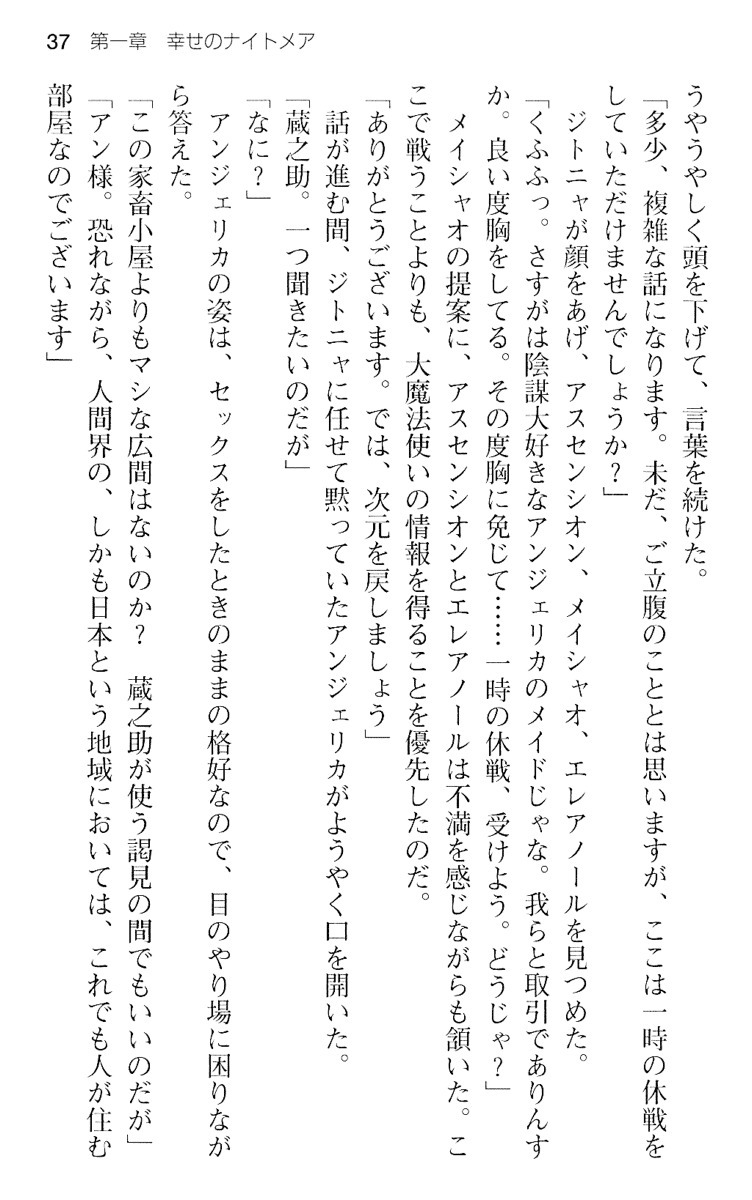 37 第一章 幸せのナイトメア
うやうやしく頭を下げて、言葉を続けた。
「多少、複雑な話になります。未だ、ご立腹のこととは思いますが、ここは一時の休戦を
していただけませんでしょうか？」
ジトニャが顔をあげ、アスセンシオン、メイシャオ、エレアノールを見つめた。
「くふふっ。さすがは陰謀大好きなアンジェリカのメイドじゃな。我らと取引でありんす
か。良い度胸をしてる。その度胸に免じて……一時の休戦、受けよう。どうじゃ？」
メイシャオの提案に、アスセンシオンとエレアノールは不満を感じながらも頷いた。こ
こで戦うことよりも、大魔法使いの情報を得ることを優先したのだ。
「ありがとうございます。では、次元を戻しましょう」
話が進む間、ジトニャに任せて黙っていたアンジェリカがようやく口を開いた。
「蔵之助。一つ聞きたいのだが」
「なに？」
アンジェリカの姿は、セックスをしたときのままの格好なので、目のやり場に困りなが
ら答えた。
「この家畜小屋よりもマシな広間はないのか？　蔵之助が使う謁見の間でもいいのだが」
「アン様。恐れながら、人間界の、しかも日本という地域においては、これでも人が住む
部屋なのでございます」